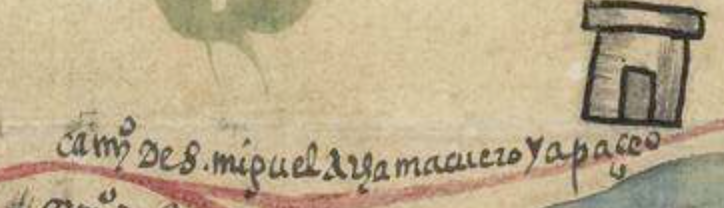 camyº De S. miguel A yamacuero y apaçeo